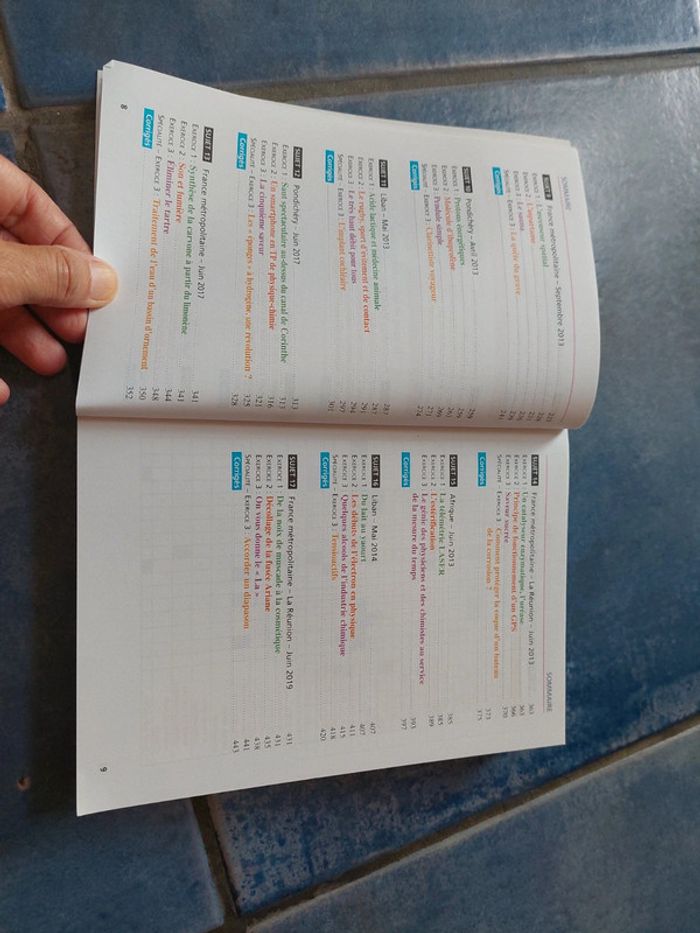 SOMMAIRE
SUJET 9 France métropolitaine – Septembre 2013
EXERCICE 1 : L'ascenseur spatial
EXERCICE 2 :
EXERCICE 3 : Le sauna
SPÉCIALITÉ – EXERCICE 3 : La quête du grave
Corrigés 241
SUJET 10 Pondichéry – Avril 2013 259
EXERCICE 1 : 259
EXERCICE 2 : Molécule d'ibuprofène 263
EXERCICE 3 : Pendule simple 269
SPÉCIALITÉ – EXERCICE 3 : Clarinettiste voyageur 271
Corrigés 274
SUJET 11 Liban – Mai 2013 287
EXERCICE 1 : Acide lactique et médecine animale 287
EXERCICE 2 : Le rugby, sport d'évitement et de contact 291
EXERCICE 3 : Le très haut débit pour tous 294
SPÉCIALITÉ – EXERCICE 3 : L'implant cochléaire 297
Corrigés 301
SUJET 12 Pondichéry – Juin 2017 313
EXERCICE 1 : Saut spectaculaire au-dessus du canal de Corinthe 313
EXERCICE 2 : Un smartphone en TP de physique-chimie 316
EXERCICE 3 : La cinquième saveur 321
SPÉCIALITÉ – EXERCICE 3 : Les « éponges » à hydrogène, une révolution ? 325
Corrigés 328
SUJET 13 France métropolitaine – Juin 2017 341
EXERCICE 1 : Synthèse de la carvone à partir du limonène 341
EXERCICE 2 : Son et lumière 344
EXERCICE 3 : Éliminer le tartre 348
SPÉCIALITÉ – EXERCICE 3 : Traitement de l'eau d'un bassin d'ornement 350
Corrigés 352
8
SOMMAIRE
SUJET 14 France métropolitaine – La Réunion – Juin 2013 363
EXERCICE 1 : Un catalyseur enzymatique, l'uréase 363
EXERCICE 2 : Principe de fonctionnement d'un GPS 366
EXERCICE 3 : Saveur sucrée 370
SPÉCIALITÉ – EXERCICE 3 : Comment protéger la coque d'un bateau
de la corrosion ? 373
Corrigés 375
SUJET 15 Afrique – Juin 2013 385
EXERCICE 1 : La télémétrie LASER 385
EXERCICE 2 : L'estérification 389
EXERCICE 3 : Le génie des physiciens et des chimistes au service
de la mesure du temps 393
Corrigés 397
SUJET 16 Liban – Mai 2014 407
EXERCICE 1 : Du lait au yaourt 407
EXERCICE 2 : Les débuts de l'électron en physique 411
EXERCICE 3 : Quelques alcools de l'industrie chimique 415
SPÉCIALITÉ – EXERCICE 3 : Tensioactifs 418
Corrigés 420
SUJET 17 France métropolitaine – La Réunion – Juin 2019 431
EXERCICE 1 : De la noix de muscade à la cosmétique 431
EXERCICE 2 : Décollage de la fusée Ariane 435
EXERCICE 3 : On vous donne le « La » 438
SPÉCIALITÉ – EXERCICE 3 : Accorder un diapason 441
Corrigés 443
9